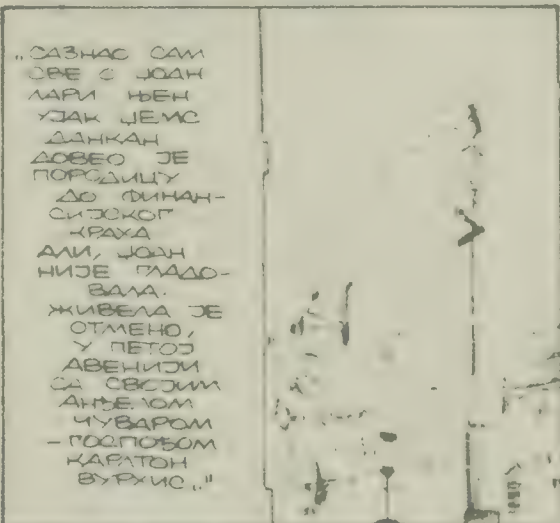 „САЗНАО САМ
СВЕ О ЏОАН
ЛАРИ ЊЕН
УЈАК ЏЕМС
ДАНКАН
ДОВЕО ЈЕ
ПОРОДИЦУ
ДО ФИНАН-
СИЈСКОГ
КРАХА
АЛИ, ЏОАН
НИЈЕ ГЛАДО-
ВАЛА.
ЖИВЕЛА ЈЕ
ОТМЕНО,
У ПЕТОЈ
АВЕНИЈИ
СА СВОЈИМ
АНЂЕЛОМ
ЧУВАРОМ
– ГОСПОЂОМ
КАРЛТОН
ВУРХИС.."